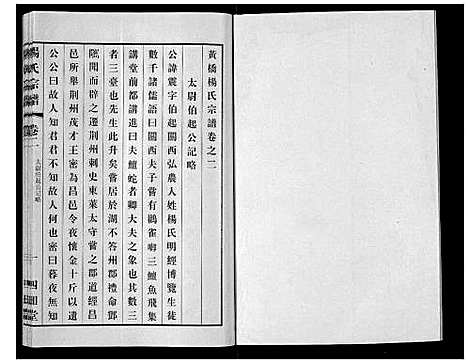 黃橋楊氏宗譜卷之二
太尉伯起公記略
公諱震字伯起關西弘農人姓楊氏明經博覽生徒
數千諸儒語曰關西夫子嘗有鸛雀啣三鱣魚飛集
講堂前都講進曰夫鱣蛇者卿大夫之象也其數三
者三臺也先生此升矣嘗居於湖不答州郡禮命鄧
隲聞而辟之遷荆州刺史東萊太守嘗之郡道經昌
邑所舉荆州茂才王密為昌邑令夜懷金十斤以遺
公公曰故人知君君不知故人何也密曰暮夜無知
楊氏宗譜
卷二
太尉伯起公記略
一
四知堂